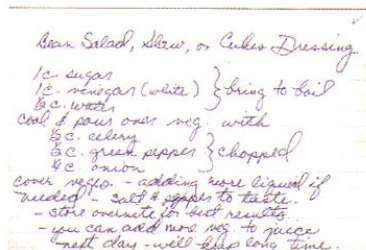 Bean Salad, Slaw, or Cukes Dressing
1c. sugar
1c. vinegar (white) } bring to boil
½c. water
cool & pour over veg. with
½c. celery
½c. green pepper } chopped
onion
cover vegs. - adding more liquid if
needed - salt & pepper to taste.
- store overnite for best results.
- you can add more veg. to juice
next day - will keep long time.